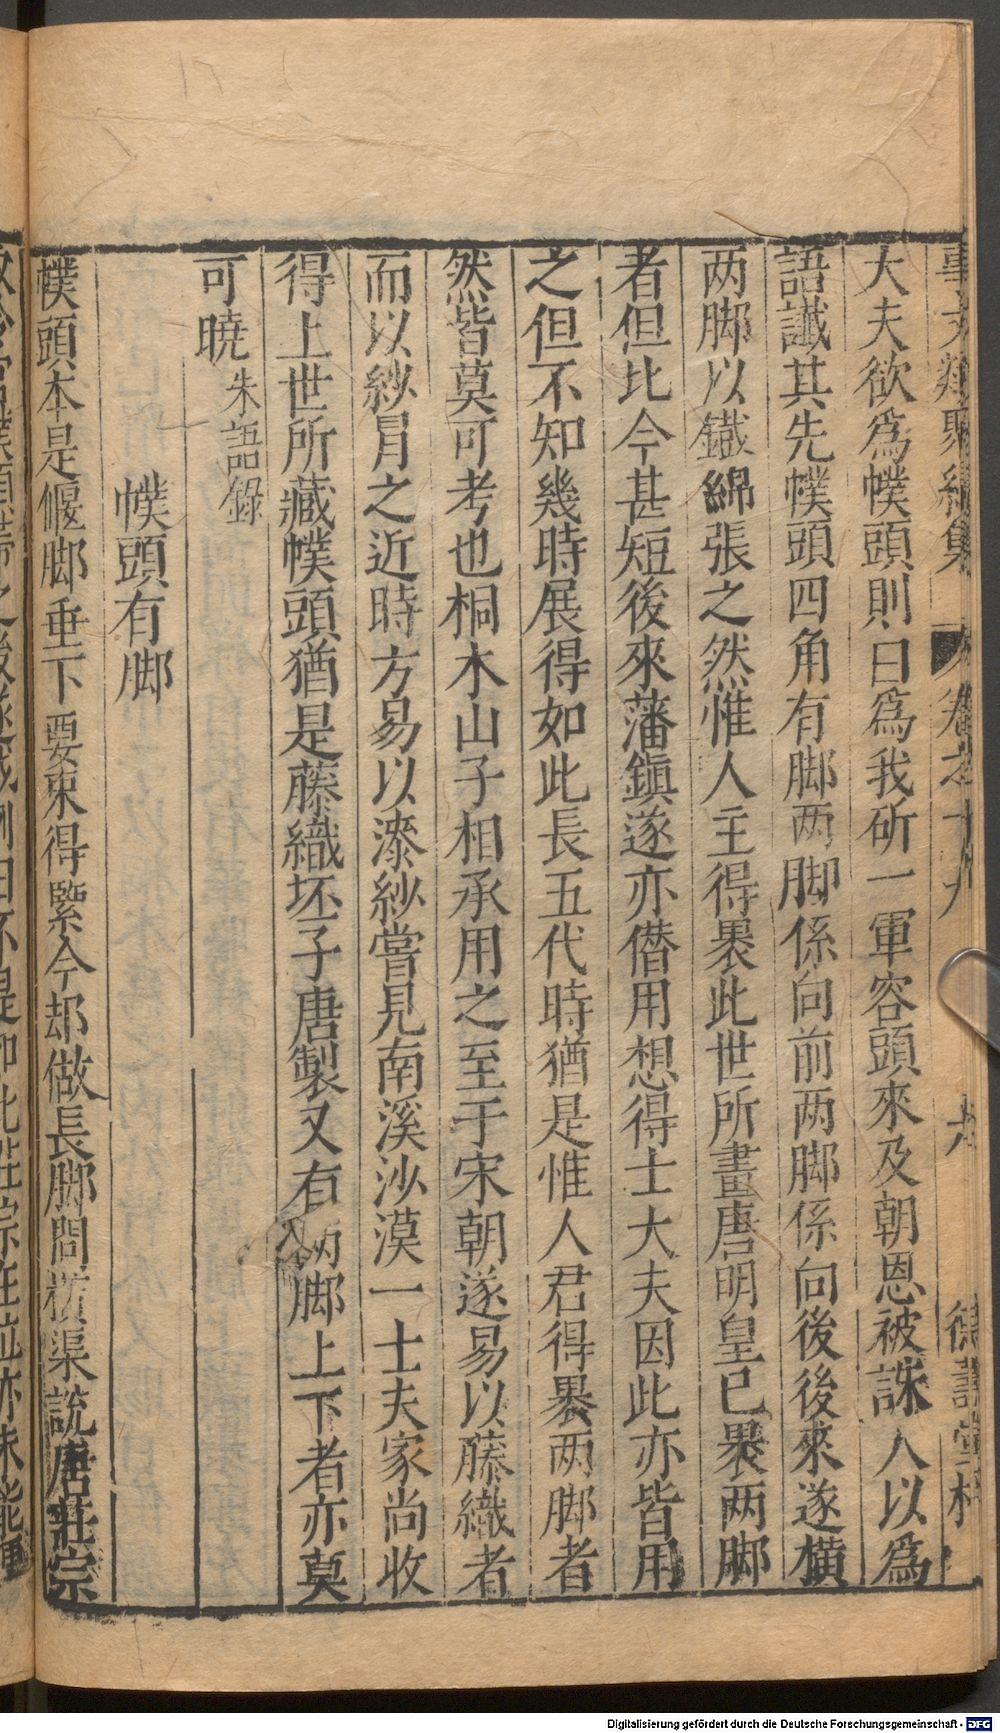 事文類聚續集 卷之十九 十 德壽堂梓
大夫欲爲幞頭則曰爲我斫一軍容頭來及朝恩被誅人以爲
語讖其先幞頭四角有脚两脚係向前两脚係向後後來遂橫
两脚以鐵綿張之然惟人主得裹此世所畫唐明皇已裹两脚
者但比今甚短後來藩鎮遂亦僭用想得士大夫因此亦皆用
之但不知幾時展得如此長五代時猶是惟人君得裹两脚者
然皆莫可考也桐木山子相承用之至于宋朝遂易以藤織者
而以紗冐之近時方易以漆紗嘗見南溪沙漠一士夫家尚收
得上世所藏幞頭猶是藤織坯子唐製又有两脚上下者亦莫
可曉 朱語錄
幞頭有脚
幞頭本是偃脚垂下要束得緊今却做長脚問橫渠說唐莊宗
Digitalisierung gefördert durch die Deutsche Forschungsgemeinschaft - DFG